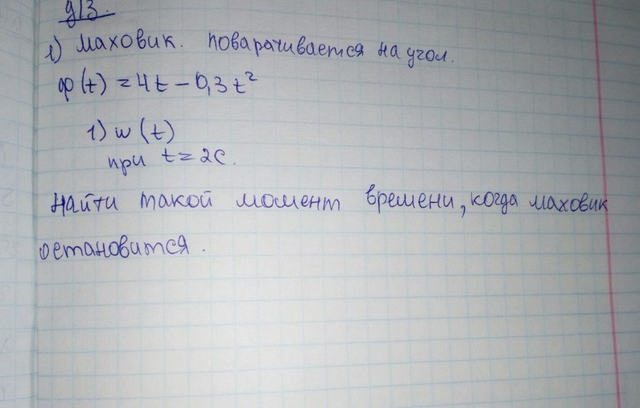 д/з.
1) Маховик. поварачивается на угол.
φ(t) = 4t − 0,3t²
1) w(t)
при t = 2c.
Найти такой момент времени, когда маховик
остановится.